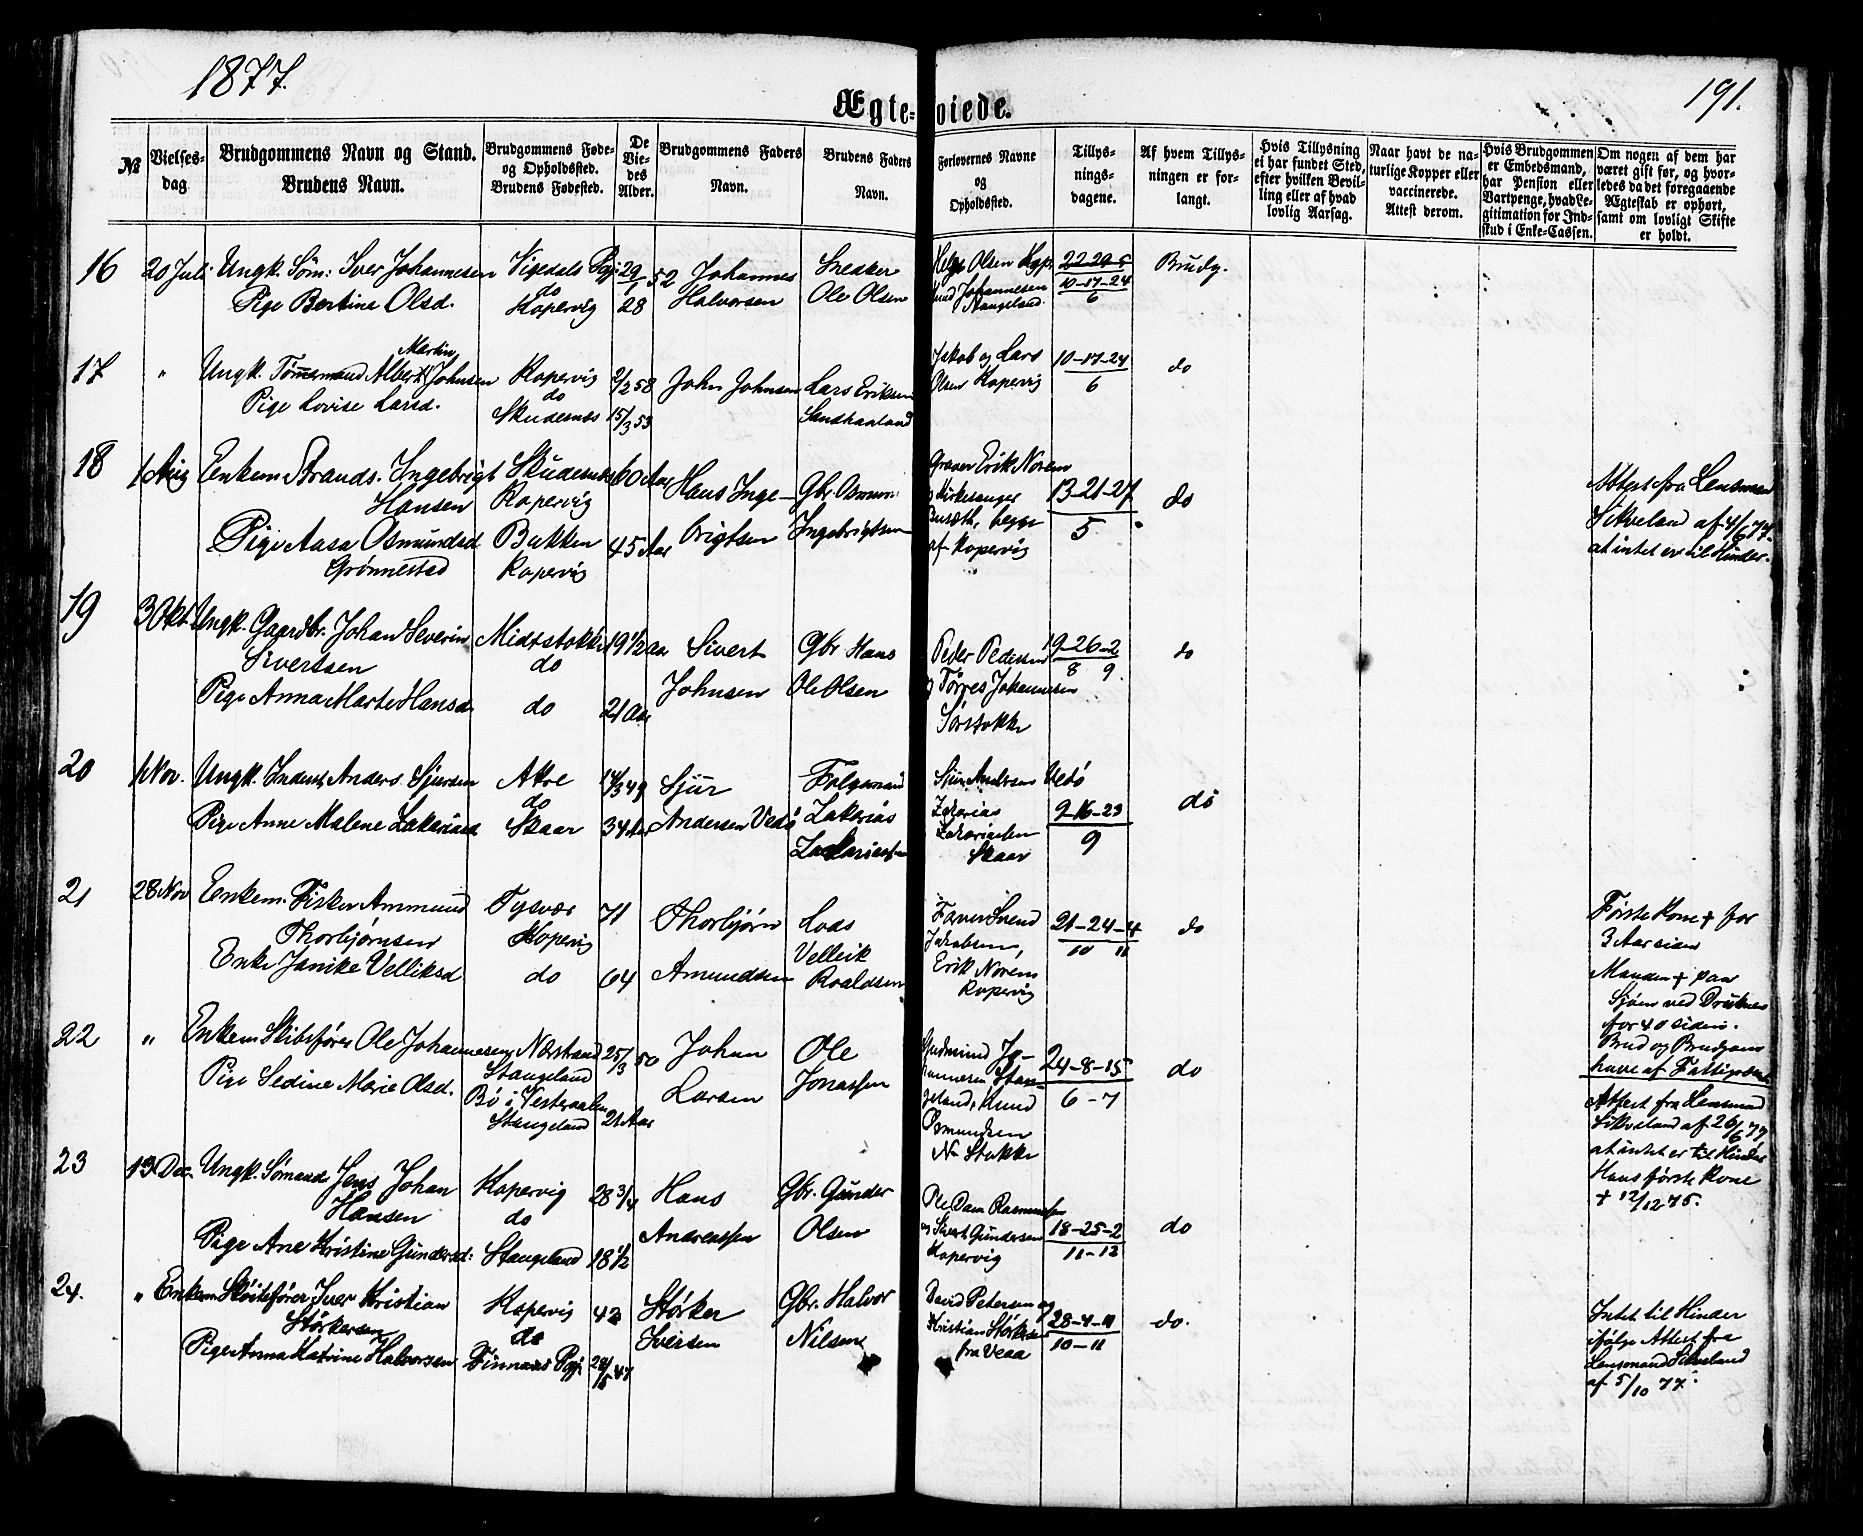 1877.
191.
Ægte-viede.
№
Vielses-dag.
Brudgommens Navn og Stand.
Brudens Navn.
Brudgommens Føde- og Opholdssted.
Brudens Fødested.
De Viedes Alder.
Brudgommens Faders Navn.
Brudens Faders Navn.
Forlovernes Navne og Opholdssted.
Tillysningsdagene.
Af hvem Tillysningen er forlangt.
Hvis Tillysning ei har fundet Sted, efter hvilken Bevilling eller af hvad lovlig Aarsag.
Naar havt de naturlige Kopper eller vaccinerede. Attest derom.
Hvis Brudgommen er Embedsmand, har Pension eller Vartpenge, hvad Legitimation for Indskud i Enke-Cassen.
Om nogen af dem har været gift før, og hvorledes da det foregaaende Ægteskab er ophørt, samt om lovligt Skifte er holdt.
16 20 Juli Ungk. Søm: Iver Johannesen Vigedals Pgj 29/1 52 Johannes Snedker Helge Olsen Kopr 22-29-5 Brudg.
Pige Bertine Olsd. do Kopervig 28 Halvorsen Ole Olsen Knud Johannesen Stangeland 10-17-24/6
17 " Ungk. Tømmermand Albert Martin Johnsen Kopervig 2/2 58 John Johnsen Lars Eriksen Jakob og Lars 10-17-24 do
Pige Lovise Larsd. do Skudesnes 15/3 53 Sandhaaland Olsen Kopervig 6
18 1 Aug Enkem Strands. Ingebrigt Skudesnes 60 Aar Hans Inge- Gbr Osmun Graver Erik Norem 13-21-27 do Attest fra Lensman
Hansen Kopervig og Kirkesanger 5 Sikveland af 4/6 77.
Pige Aasa Osmundsd Bakken 45 Aar brigtsen Ingebrigtsen begge at intet er til Hinder.
Grønnestad Kopervig af Kopervig
19 3 Okt Ungk. Gaardbr. Johan Severin Midtstokke 19 1/2 aar Sivert Gbr Hans Peder Pedersen 19-26-2 do
Sivertsen do Johnsen Ole Olsen og Tørres Johannesen 8 9.
Pige Anna Marte Hansd do 21 Aar Sørstokke
20 1 Nov. Ungk. Anders Sjursen Akre 14/3 49 Sjur Sjur Andersen Vedø
Pige Anne Malene Zakariasd do Skaar 34 Aar Andersen Vedø Zakarias Zakarias 9-16-23 do
Zakariassen Zakariassen Skaar 9
21 28 Nov Enkem. Fisker Ammund Tysvær 71 Thorbjørn Svend 21-24-4 do Første Kone + for
Thorbjørnsen Kopervig Vellik Jakobsen, 10 11 3 Aar siden
Enke Janike Velliksd do 64 Amundsen Roaldsen Erik Norem Manden + paa
Kopervig Sjøen ved Druknen
for 40 siden.
22 " Enkem Skibsfører Ole Johannesen Nærstrand 25/3 50 Johan Ole Gudmund Jo- 24-8-15 do Brud og Brudgom
Stangeland hannesen Stan- have af Fattigvæsen
Pige Sedine Marie Olsd. Bø i Vesteraalen 21 Aar Larsen Jonassen geland, Knud 6-7 Attest fra Lensmand
Stangeland Osmundsen Sikveland af 26/6 77
N Stokke at intet er til Hinder
23 13 Dec. Ungk. Sømand Jens Johan Kopervig 28 3/4 Hans Gbr. Gunder Ole Dam Rasmussen Hans første Kone
Hansen do Andreassen Olsen og Sivert Gundersen 18-25-2 do + 12/12 75.
Pige Ane Kristine Gundersd: Stangeland 18 1/2 Kopervig 11-12
24. " Enkem Skøitefører Iver Kristian Kopervig 42 Størker Gbr. Halvor David Petersen og 28-4-11 do. Intet til Hinder
Størkersen do Iversen Nilsen Kristian Størkersen 10-11 ifølge Attest fra
Pige Anna Katrine Halvorsen Finnaas Pgj. 28/5 47 fra Veaa Lensmand Sikveland
af 5/10 77.